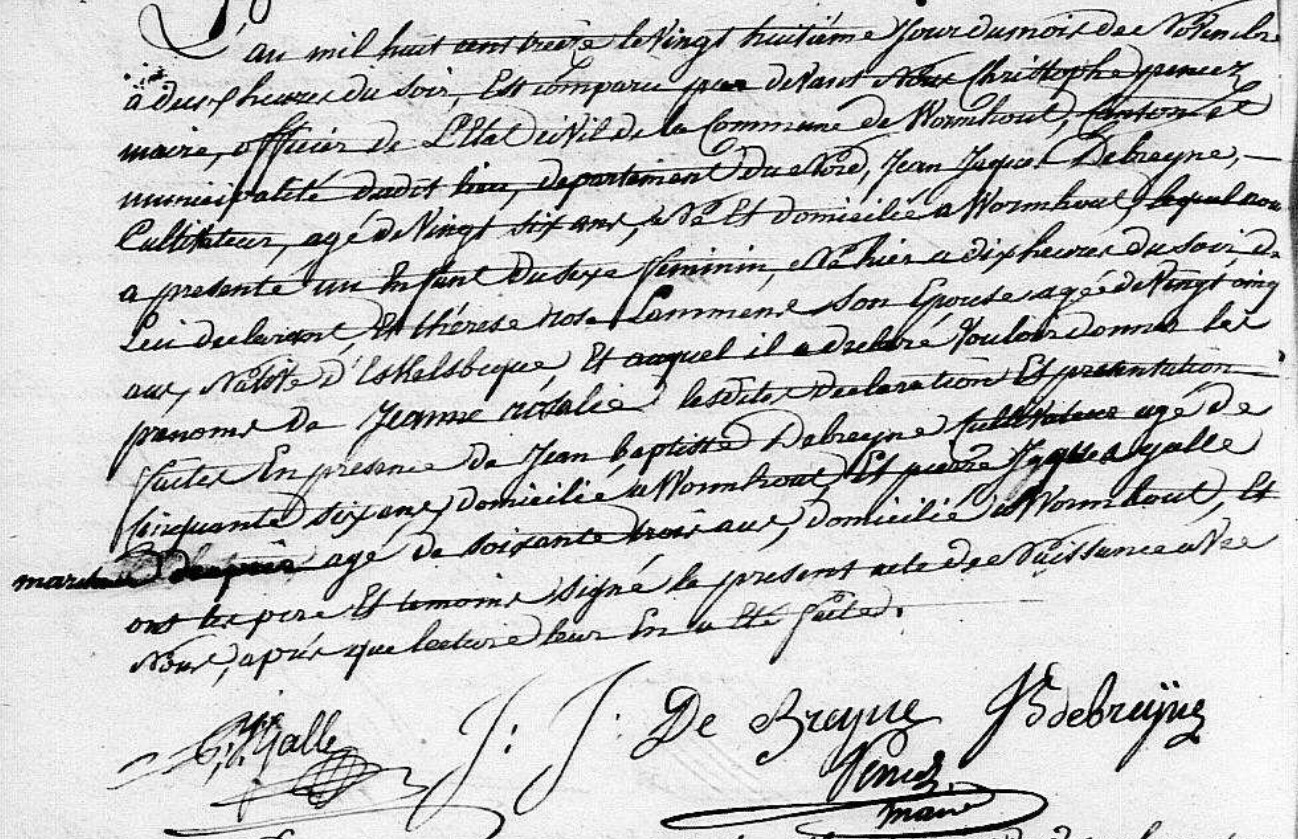 L'an mil huit cent treize le vingt huitième Jour du mois de Novembre
à deux heures du soir, Est comparu par devant Nous Christophe penez
maire, officier de L'Etat civil de la Commune de Wormhout, Canton et
municipalité dudit lieu, departement du Nord, Jean Jaques Debreyne,
Cultivateur, agé de vingt six ans, Né Et domicilié a Wormhout, lequel nous
a presenté un Enfant du sexe feminin, Né hier a dix heures du soir, de
Lui declarant, Et thérese rose Lammens son Epouse agée de vingt cinq
ans, Native d'Eskelsbeque Et auquel il a declaré Vouloir donner les
prenoms de Jeanne rosalie lesdites declaration Et presentation
faites En presence de Jean baptiste Debreyne Cultivateur agé de
Cinquante six ans, domicilié a Wormhout, Et pierre Jaques galle
agé de soixante trois ans, domicilié a Wormhout, Et
ont les pere Et temoins signé le present acte de Naissance avec
Nous, aprés que lecture leur En a Eté faite.
P: J: Galle J: J: De Breyne JB debreÿne
Penez
maire